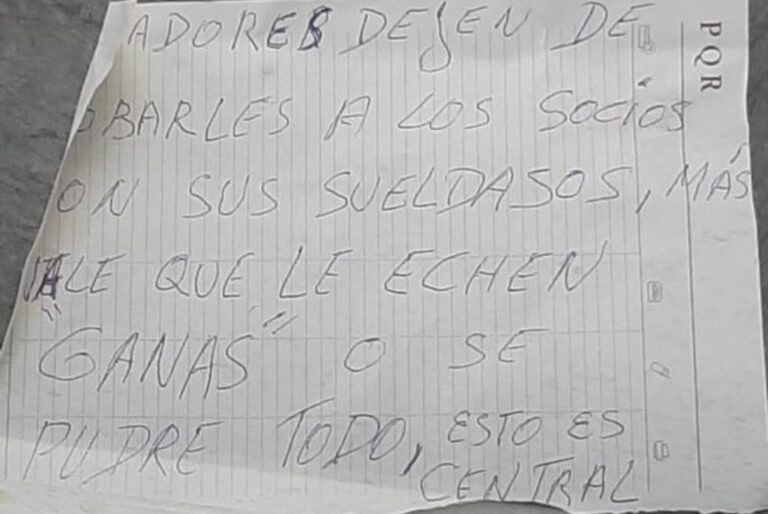 ADORES DEJEN DE
OBARLES A LOS SOCIOS
ON SUS SUELDASOS, MÁS
VALE QUE LE ECHEN
"GANAS" O SE
PUDRE TODO, ESTO ES
CENTRAL
PQR